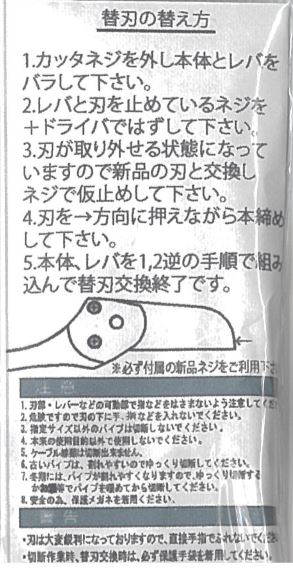 替刃の替え方
1.カッタネジを外し本体とレバを
バラして下さい。
2.レバと刃を止めているネジを
＋ドライバではずして下さい。
3.刃が取り外せる状態になって
いますので新品の刃と交換し
ネジで仮止めして下さい。
4.刃を→方向に押えながら本締め
して下さい。
5.本体、レバを1,2逆の手順で組み
込んで替刃交換終了です。
※必ず付属の新品ネジをご利用下さ
注意
1. 刃部・レバーなどの可動部で指などをはさまないよう注意してくだ
2. 危険ですので刃の下に手、指などを入れないでください。
3. 指定サイズ以外のパイプは切断しないでください。
4. 本来の使用目的以外で使用しないでください。
5. ケーブル線類は切断出来ません。
6. 古いパイプは、割れやすいのでゆっくり切断してください。
7. 冬期には、パイプが割れやすくなりますので、ゆっくり切断する
か お湯等でパイプを暖めてから切断してください。
8. 安全の為、保護メガネを着用ください。
警告
・刃は大変鋭利になっておりますので、直接手指でふれないでくださ
・切断作業時、替刃交換時は、必ず保護手袋を着用してください。